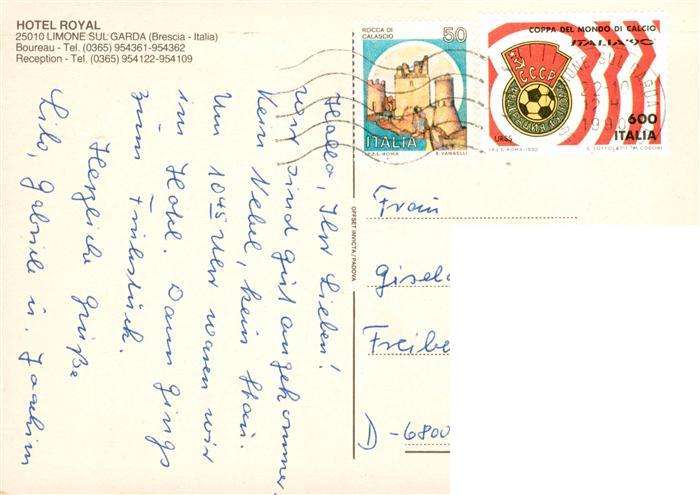 HOTEL ROYAL
25010 LIMONE SUL GARDA (Brescia - Italia)
Boureau - Tel. (0365) 954361-954362
Reception - Tel. (0365) 954122-954109
ROCCA DI
CALASCIO
50
ITALIA
I.P.Z.S. ROMA
E. VANGELLI
COPPA DEL MONDO DI CALCIO
ITALIA '90
CCCP
URSS
600
ITALIA
I.P.Z.S. ROMA - 1990
1990
Hallo, Ihr Lieben!
wir sind gut angekommen.
Kein Nebel, kein Stau.
Um 10 45 Uhr waren wir
im Hotel. Dann gings
zum Frühstück.
Herzliche Grüße
Lilo, Gabriele u. Joachim
OFFSET INVICTA/PADOVA
Frau
Gisel
Freibe
D-6800